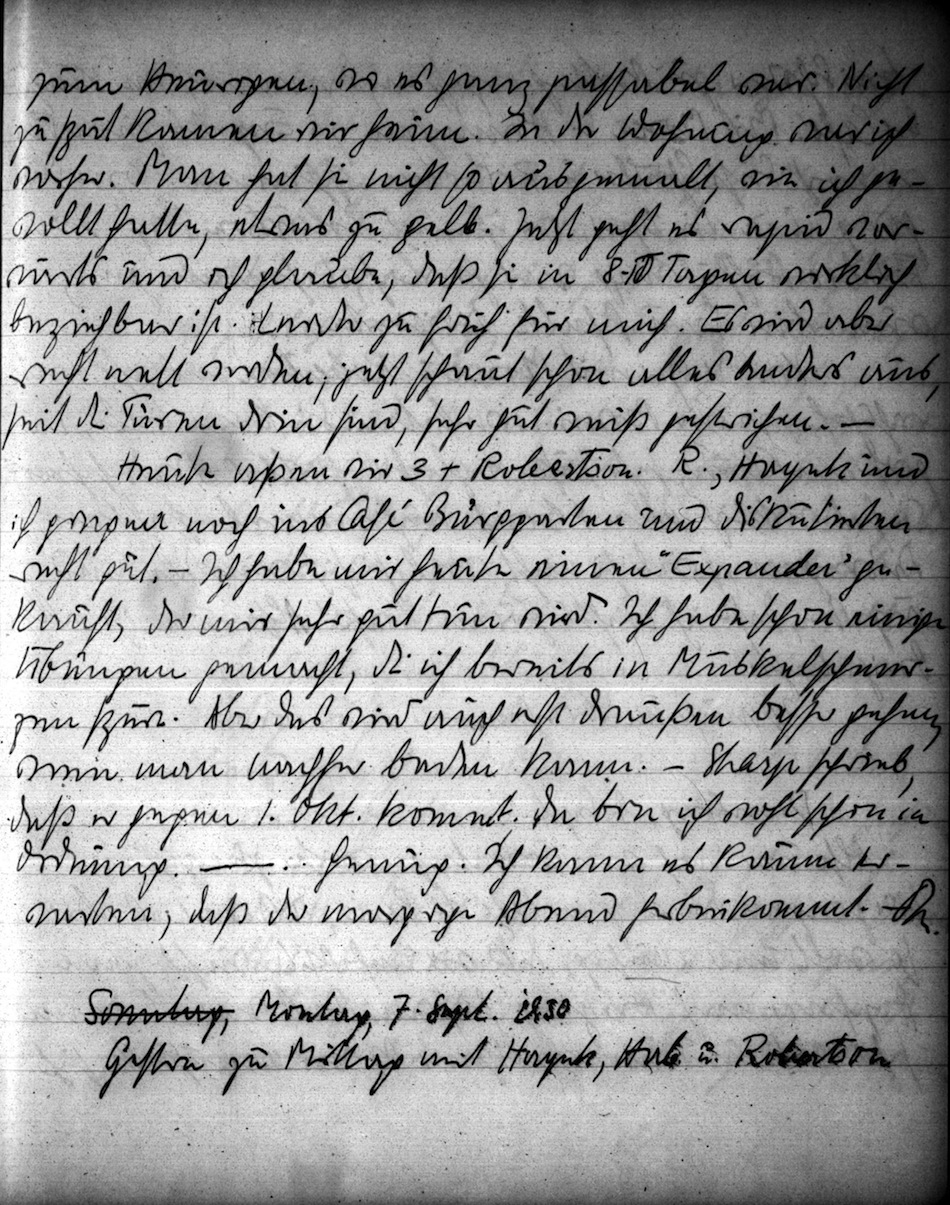 zum Heurigen, wo es ganz passabel war. Nicht
zu spät kamen wir heim. In der Wohnung war ich
vorher. Man hat sie nicht so ausgemalt, wie ich ge-
wollt hatte, etwas zu gelb. Jetzt geht es rapid vor-
wärts und ich glaube, daß sie in 8-10 Tagen wirklich
beziehbar ist. zu früh für mich. Es wird aber
recht nett werden; jetzt schaut schon alles anders aus,
seit die Türen drin sind, sehr gut weiß gestrichen. —
Heute aßen wir 3 + Robertson. R., Hayek und
ich gingen noch ins Café Burggarten und diskutierten
recht gut. — Ich habe mir heute einen "Expander" ge-
kauft, der mir sehr gut tun wird. Ich habe schon einige
Übungen gemacht, die ich bereits in Muskelschmer-
zen spüre. Aber das wird auch erst draußen besser gehen,
wenn man nachher baden kann. — Sharp schrieb,
daß er gegen 1. Okt. kommt. Da bin ich wohl schon in
Ordnung. —— . . Genug. Ich kann es kaum er-
warten, daß der morgige Abend herbeikommt. —
Sonntag, Montag, 7. Sept. 1930
Gestern zu Mittag mit Hayek, Hab. u. Robertson